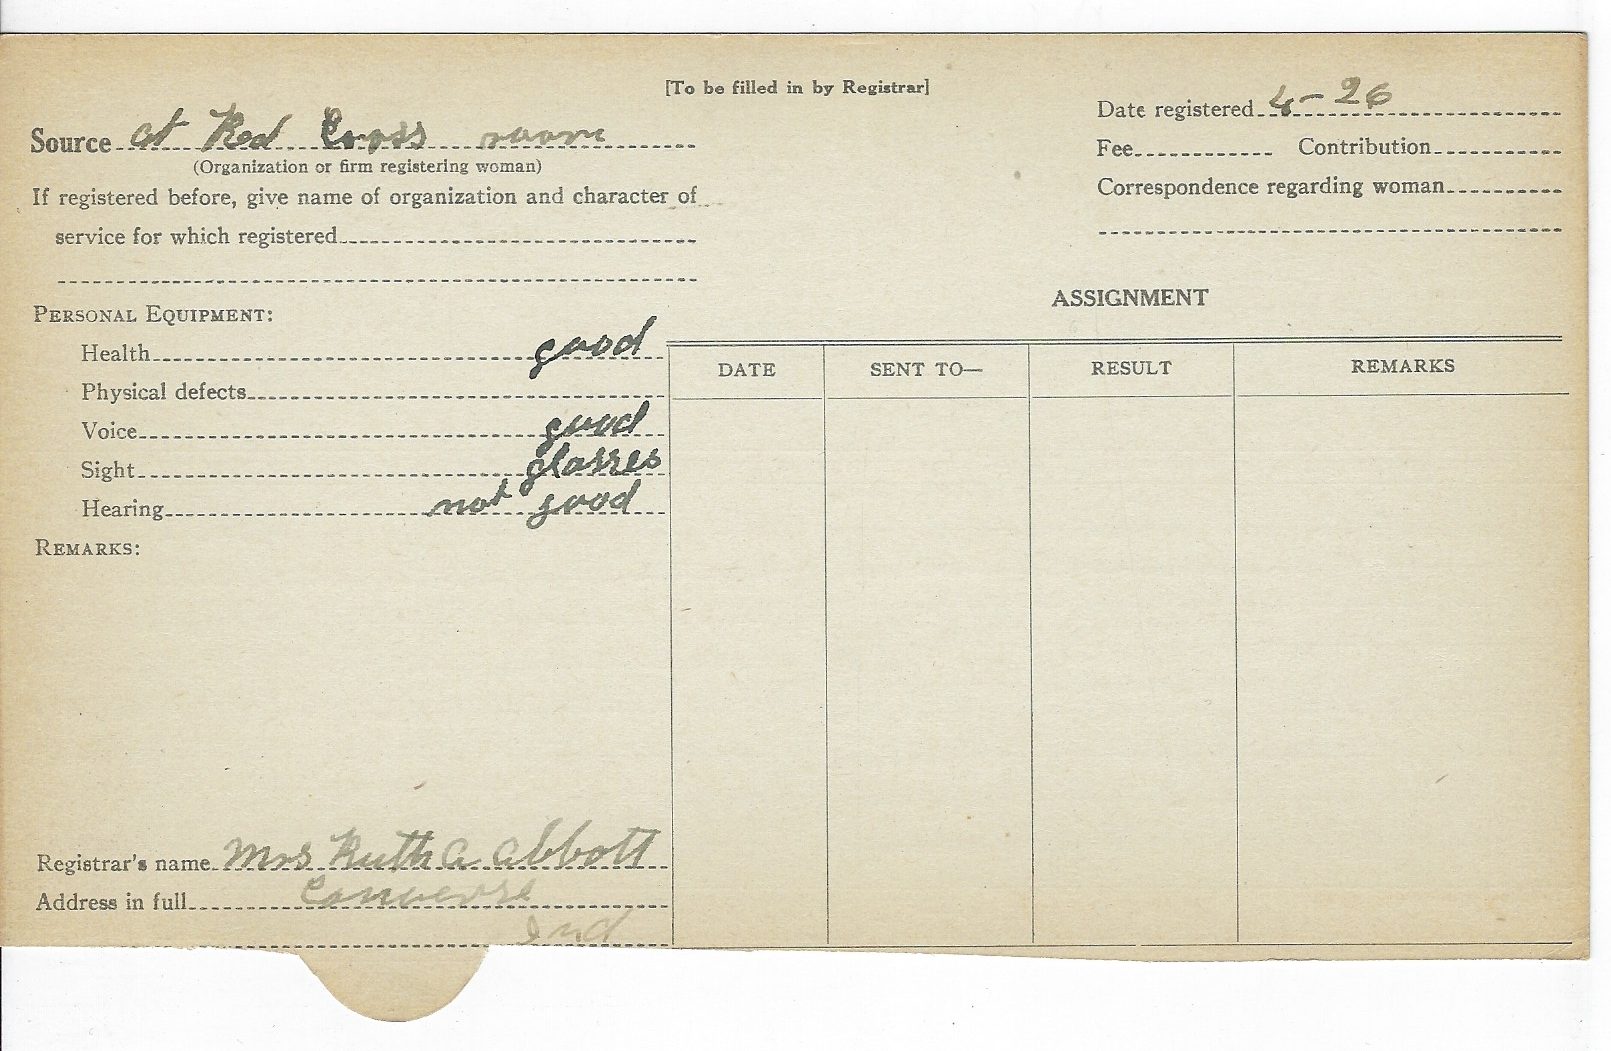 [To be filled in by Registrar]
Source at Red Cross room
(Organization or firm registering woman)
If registered before, give name of organization and character of
service for which registered
Date registered 4-26
Fee Contribution
Correspondence regarding woman
PERSONAL EQUIPMENT:
Health good
Physical defects
Voice good
Sight glasses
Hearing not good
REMARKS:
Registrar's name Mrs Ruth A Abbott
Address in full Converse
Ind
ASSIGNMENT
DATE SENT TO— RESULT REMARKS